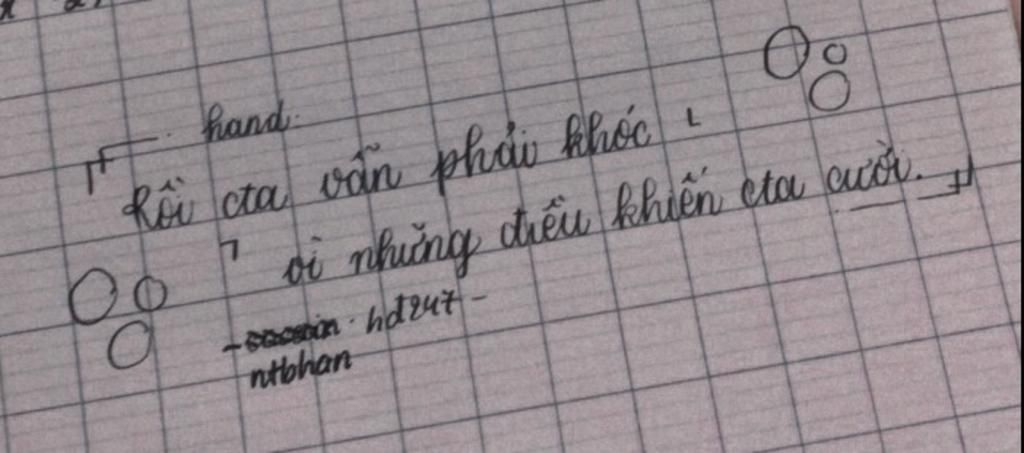 hand.
Rồi cta vẫn phải khóc
vì những điều khiến cta cười.
hd247 -
ntbhan